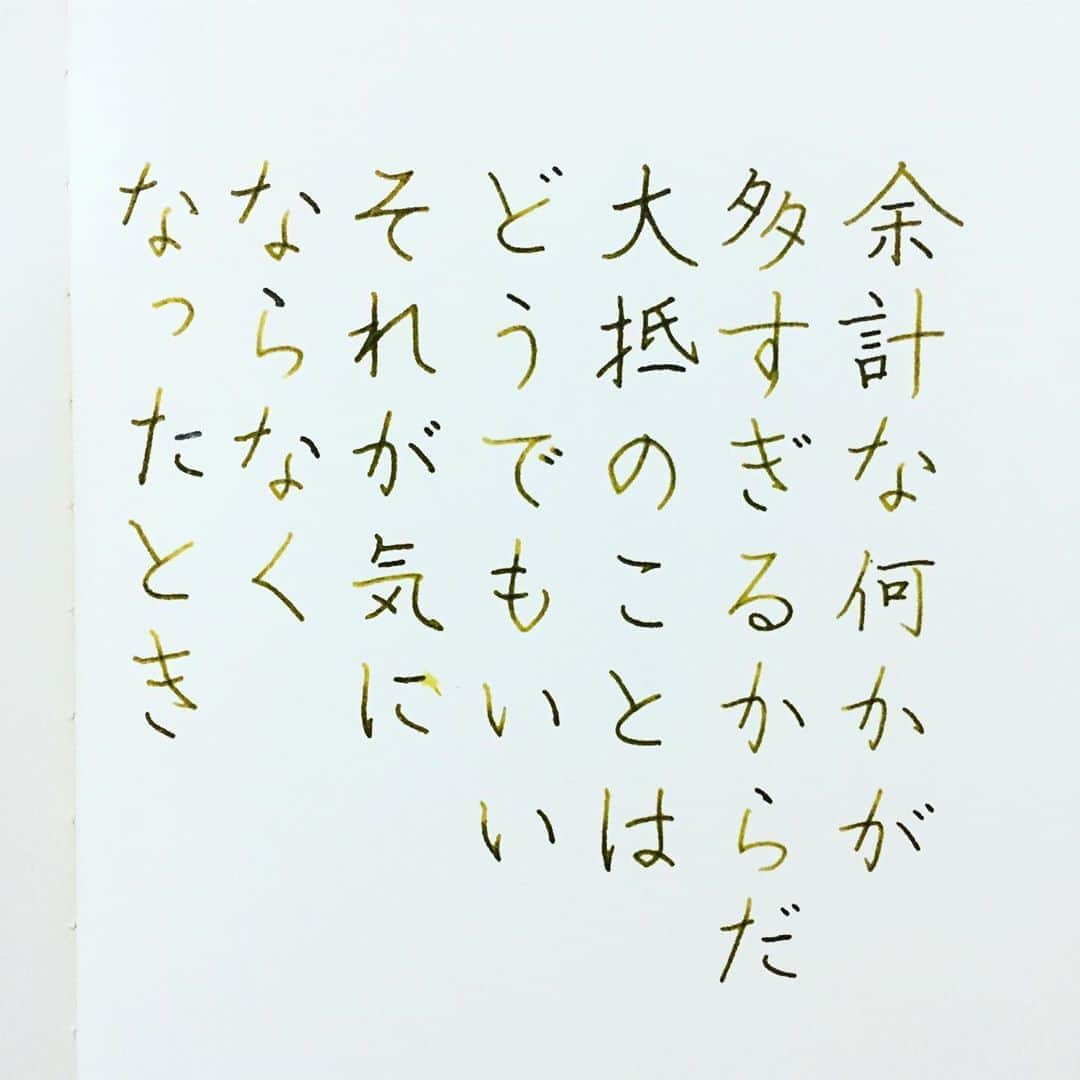 余計な何かが
多すぎるからだ
大抵のことは
どうでもいい
それが気に
ならなく
なったとき